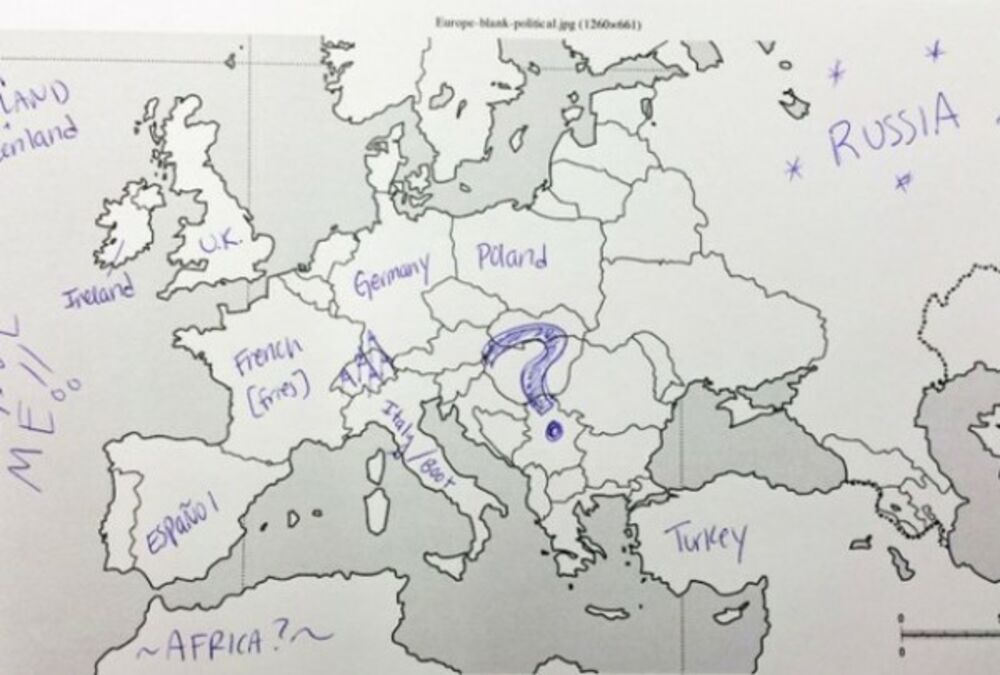 Europe-blank-political.jpg (1260x661)
LAND
enland
RUSSIA
U.K.
Ireland
Germany
Poland
French
[fries]
Italy/Boot
ESPAÑOl
Turkey
ME!!
~AFRICA?~
?
0
0